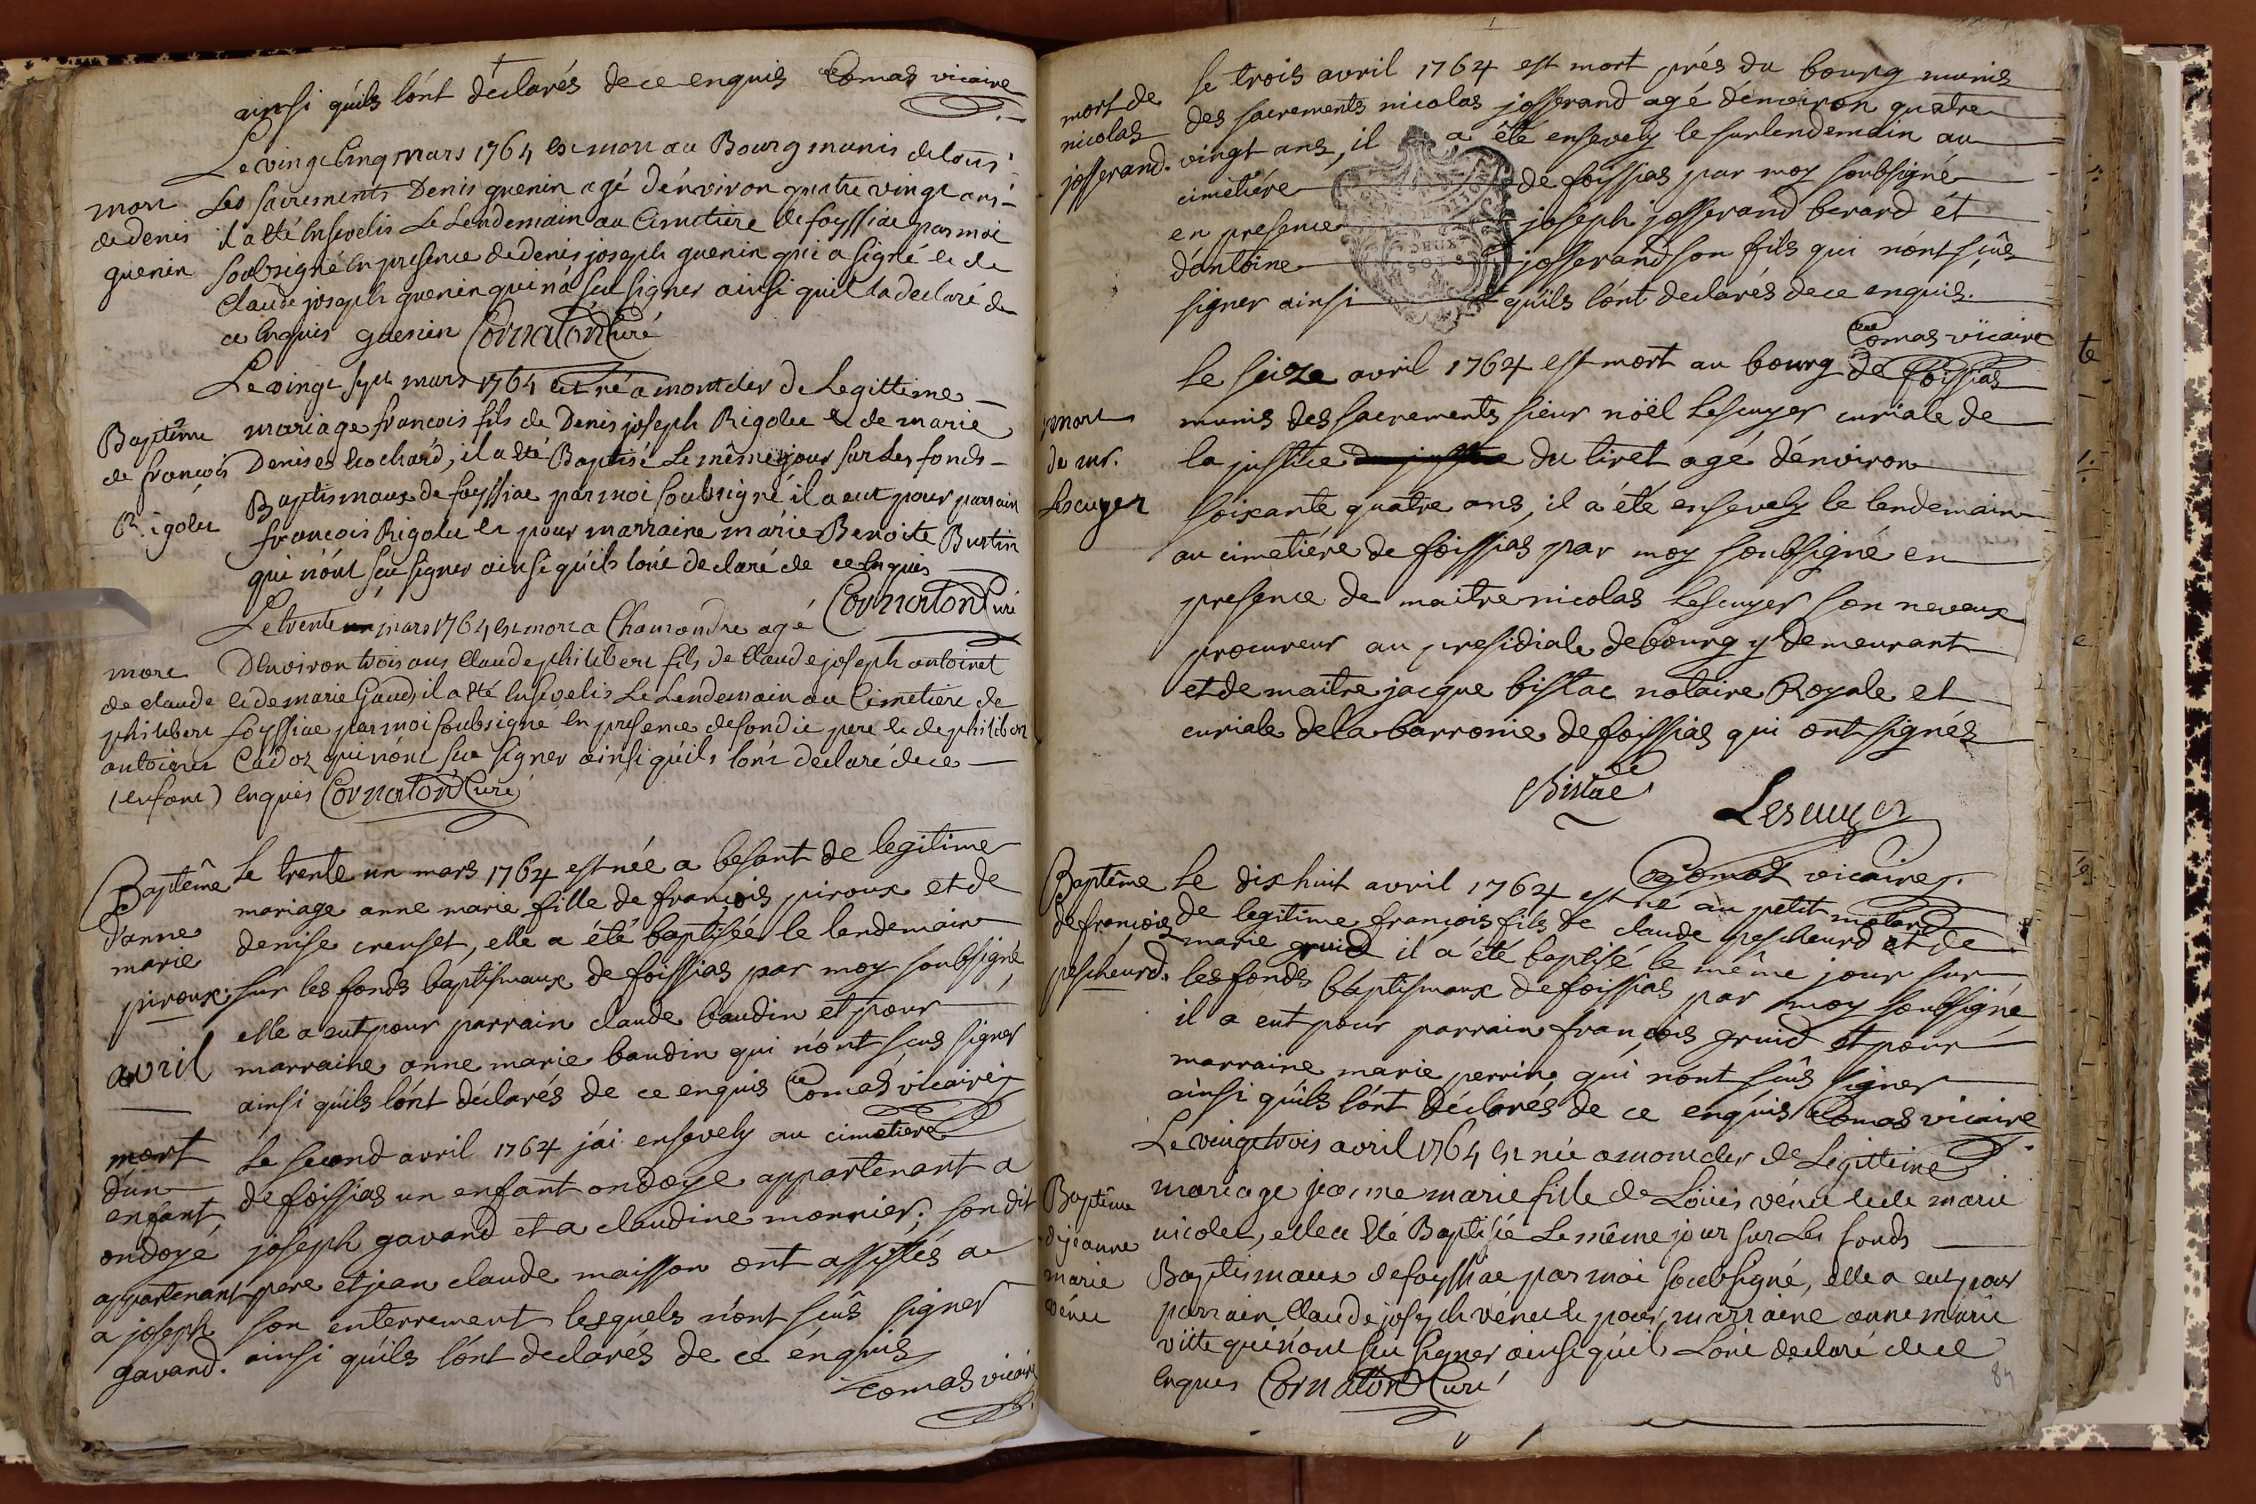 ainsi qu'ils l'ónt déclarés de ce enquis Comas vicaire
Le vingt cinq mars 1764 est mort au Bourg munis de tous
mort
de denis
guenin
Les sacrements Denis guenin agé d'énviron quatre vingt ans
il a été Ensevelis Le Lendemain au Cimetiere de foyssiac par moi
soubsigné En presence de denis joseph guenin qui a signé et de
Claude joseph guenin qui n'a sçu signer ainsi quil la declaré de
ce Enquis guenin Cornaton Curé
Le vingt sept mars 1764 est né a montcler de Legittime
Baptême
de françois
Rigolet
mariage francois fils de Denis joseph Rigolet et de marie
Denise brochard, il a été Baptisé Le même jour sur Les fonds
Baptismaux de foyssiac par moi soubsigné il a eut pour parrain
francois Rigolet et pour marraine marie Benoite Burtin
qui n'ónt sçu signer ainsi qu'ils l'ont declaré de ce Enquis
Cornaton Curé
Le trente mars 1764 est mort a Chamandre agé
mort
de claude
philibert
antoinet
(enfant)
D'Environ trois ans Claude philibert fils de Claude joseph antoinet
et de marie Gaud, il a été Ensevelis Le Lendemain au Cimetiere de
foyssiac par moi soubsigné En presence de son dit pere et de philibert
Cadoz qui n'ónt sçu signer ainsi qu'ils l'ónt declaré de ce
Enquis Cornaton Curé
Baptême
d'anne
marie
piroux.
le trente un mars 1764 est née a besant de legitime
mariage anne marie fille de françois piroux et de
denise creuset, elle a été baptisée le lendemain
sur les fonds baptismaux de foissias par moy soubsigné
elle a eut pour parrain claude baudin et pour
marraine anne marie baudin qui n'ónt sçus signer
ainsi qu'ils l'ónt déclarés de ce enquis Comas vicaire
avril
mort
d'un
enfant
ondoyé
appartenant
a joseph
gavand.
le second avril 1764 j'ai ensevely au cimetiere
de foissias un enfant ondoye appartenant a
joseph gavand et a claudine monnier; son dit
pere et jean claude maisson ont assistés a
son enterrement lesquels n'ónt sçûs signer
ainsi qu'ils l'ónt declarés de ce énquis
Comas vicaire
mort de
nicolas
josserand.
le trois avril 1764 est mort prés du bourg munis
des sacrements nicolas josserand agé d'énviron quatre
vingt ans, il a été ensevely le surlendemain au
cimetiére de foissias par moy soubsigné
en presence joseph josserand berard ét
d'antoine josserand son fils qui n'ónt sçûs
signer ainsi qu'ils l'ónt declarés de ce enquis.
Comas vicaire
mort
de mr.
Lescuyer
le seize avril 1764 est mort au bourg de foissias
munis des sacrements sieur nöèl Lescuyer curiale de
la justice du tiret agé d'énviron
soixante quatre ans, il a été ensevely le lendemain
au cimetiére de foissias par moy soubsigné en
presence de maitre nicolas Lescuyer son neveux
procureur au presidiale de bourg y demeurant
et de maitre jacque bistac notaire Royale et
curiale de la barronie de foissias qui ont signés
Bistac
Lescuyer
Comas vicaire.
Baptême
de françois
pescheurd.
le dixhuit avril 1764 est né au petit molard
de legitime françois fils de claude pescheurd et de
marie gruid il a été baptisé le même jour sur
les fonds baptismaux de foissias par moy soubsigné
il a eut pour parrain françois gruid et pour
marraine marie perrin qui n'ónt sçûs signer
ainsi qu'ils l'ónt déclarés de ce enquis Comas vicaire
Le vingt trois avril 1764 est née a montcler de Legittime
Baptême
de jeanne
marie
vénet
mariage jeanne marie fille de Loüis vénet et de marie
nicolet, elle a été Baptisée Le même jour sur Les fonds
Baptismaux de foyssiac par moi soubsigné, elle a eut pour
parrain Claude joseph vénet et pour marraine anne marie
vitte qui n'ónt sçu signer ainsi qu'ils L'ont declaré de ce
Enquis Cornaton Curé